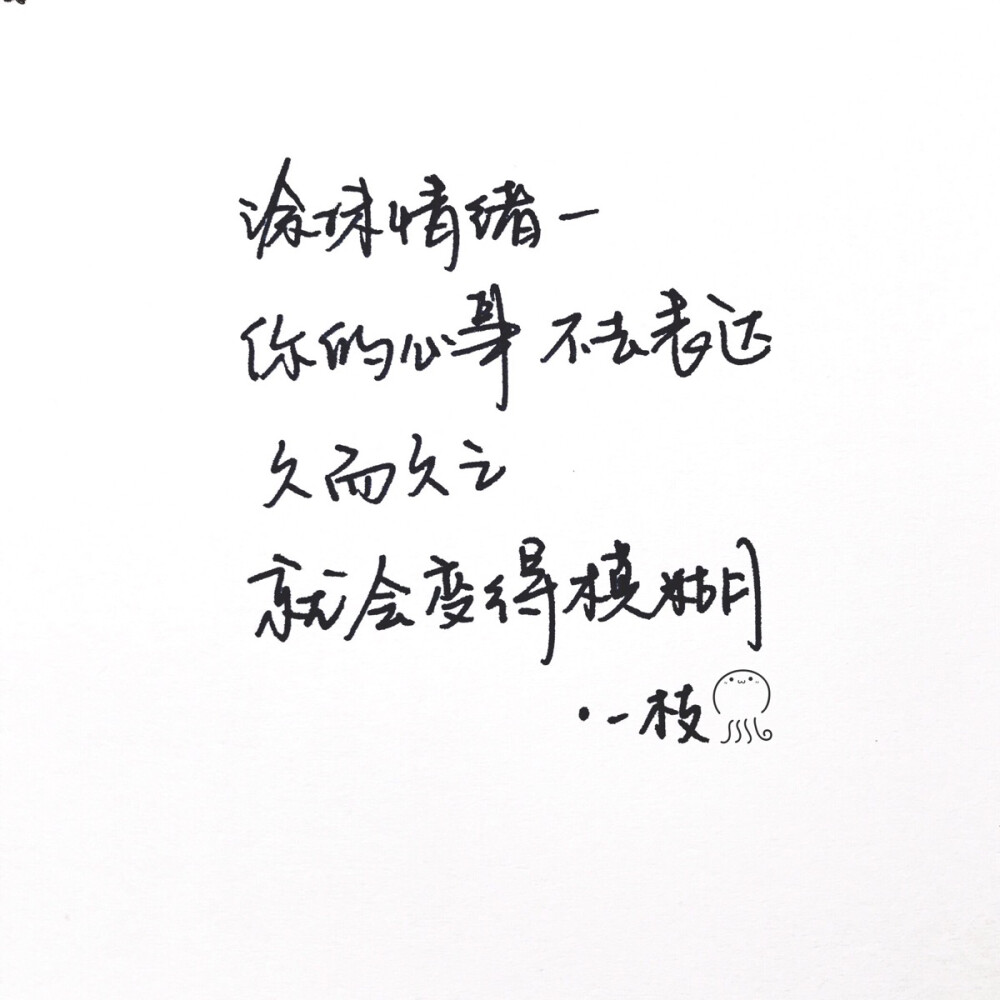 涂抹情绪一
你的心事 不去表达
久而久之
就会变得模糊
·一枝